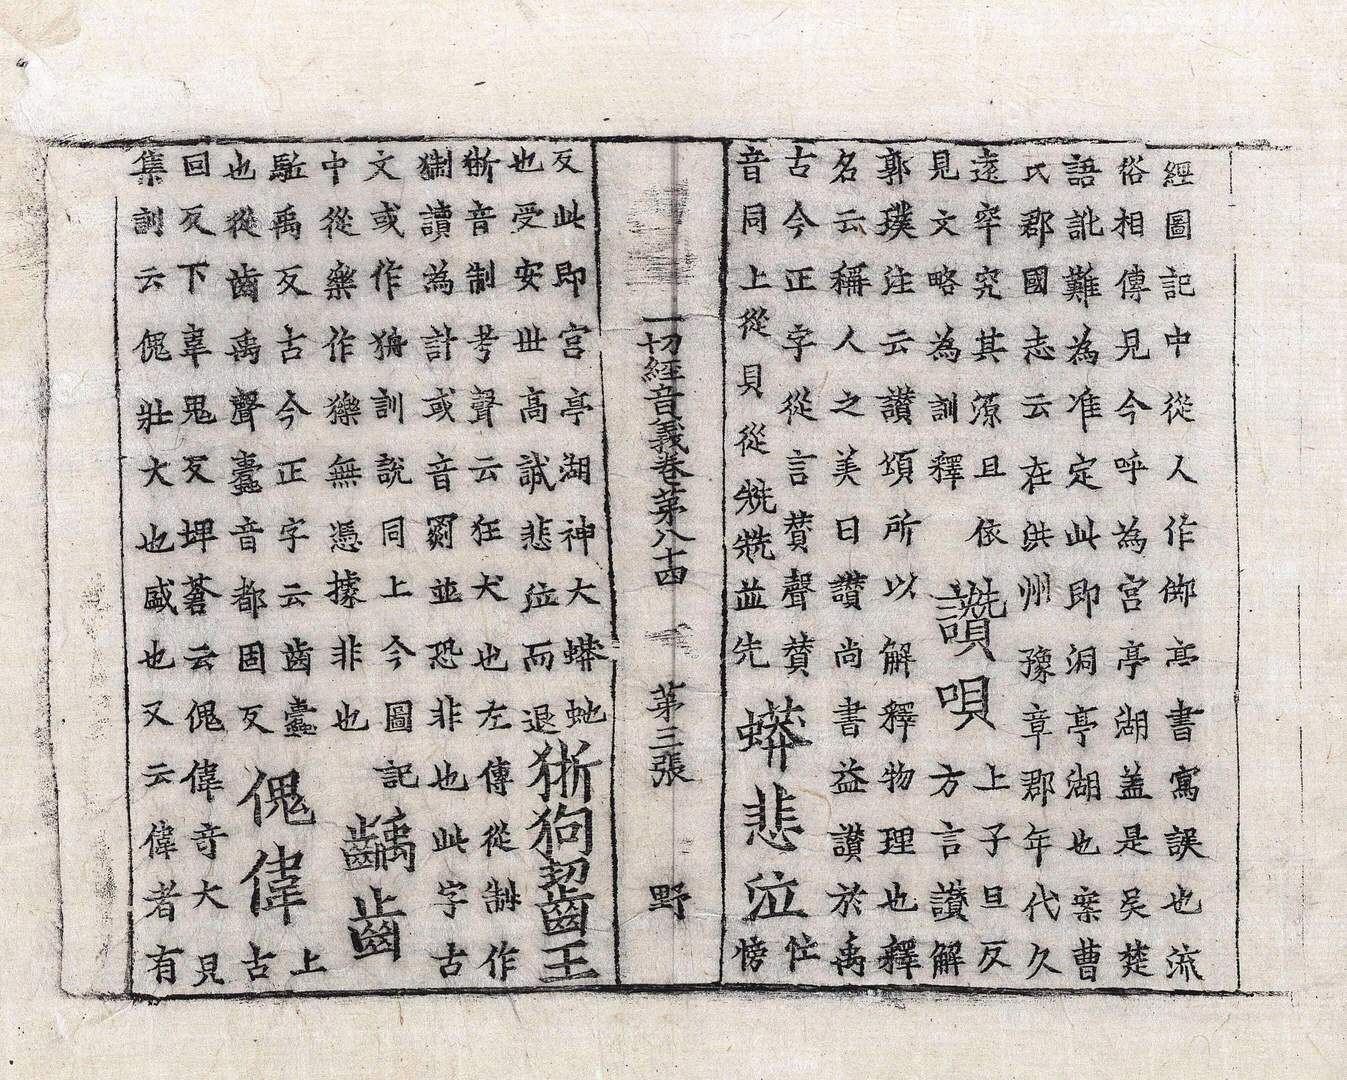 經圖記中從人作御亭書寫誤也流
俗相傳見今呼為宮亭湖盖是吳楚
語訛難為准定此即洞亭湖也案曹
氏郡國志云在洪州豫章郡年代久
遠罕究其源且依
見文略為訓釋
讚唄
上子旦反
方言讃解
郭璞注云讃頌所以解釋物理也釋
名云稱人之美曰讃尚書益讃於禹
古今正字從言賛聲賛
音同上從貝從兟兟並先
蟒悲泣
忙
牓
一切經音義卷第八十四 第三張 野
反此即宮亭湖神大蟒虵
也受安世高誡悲泣而退
狾狗齧王
狾音制考聲云狂犬也左傳從制作
猘讀為計或音罽並恐非也此字古
文或作訓說同上今圖記
中從樂作㹎無憑據非也
齲齒
駈禹反古今正字云齒蠹
也從齒禹聲蠹音都固反
傀偉
上
古
回反下韋鬼反埤蒼云傀偉竒大見
集訓云傀壯大也盛也又云偉者有